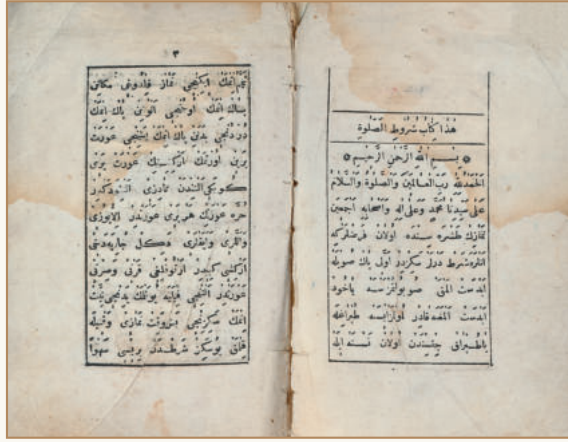 هذا كتاب شروط الصلوة
بسم الله الرحمن الرحيم
الحمد لله رب العالمين والصلوة والسلام
على سيدنا محمد وعلى اله واصحابه اجمعين
نمازك طشره سنده اولان فرضلركه
انلره شرط درلر سكزدر اولى پاك صويله
ابدست المق صو بولنمزسه ياخود
ابدست المغه قادر اولمازسه طپراغله
ياطپراق جنسندن اولان نسنه ايله
٣
اتمك ايكنجى نماز قلدوغى مكانى
پاك اتمك اوچنجى اثوابنى پاك اتمك
دردنجى بدنن پاك اتمك بشنجى عورت
يرين اورتمك اركشينك عورت يرى
كوبكى التندن ديزى التنه دكدر
حره عورتك هر يرى عورتدر الا يوزى
واللرى واياقلرى دكل جاريه دخى
اركشى كبيدر ارتوقلغى قرنى وصرتى
عورتدر التنجى قبليه يونلمك يدنجى نيت
اتمك سكزنجى نمازى وقتيله
قلمق بو سكز شرطدن بريسى سهوا